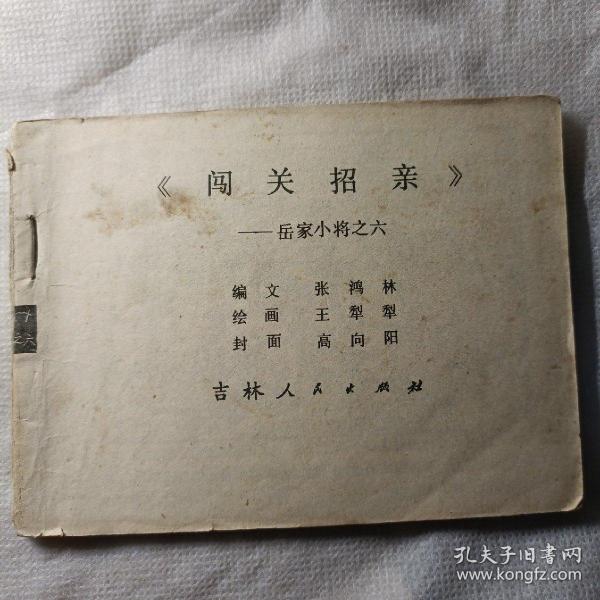 《闯关招亲》
——岳家小将之六
编文 张鸿林
绘画 王犁犁
封面 高向阳
吉林人民出版社
之六
孔夫子旧书网
www.kongfz.com